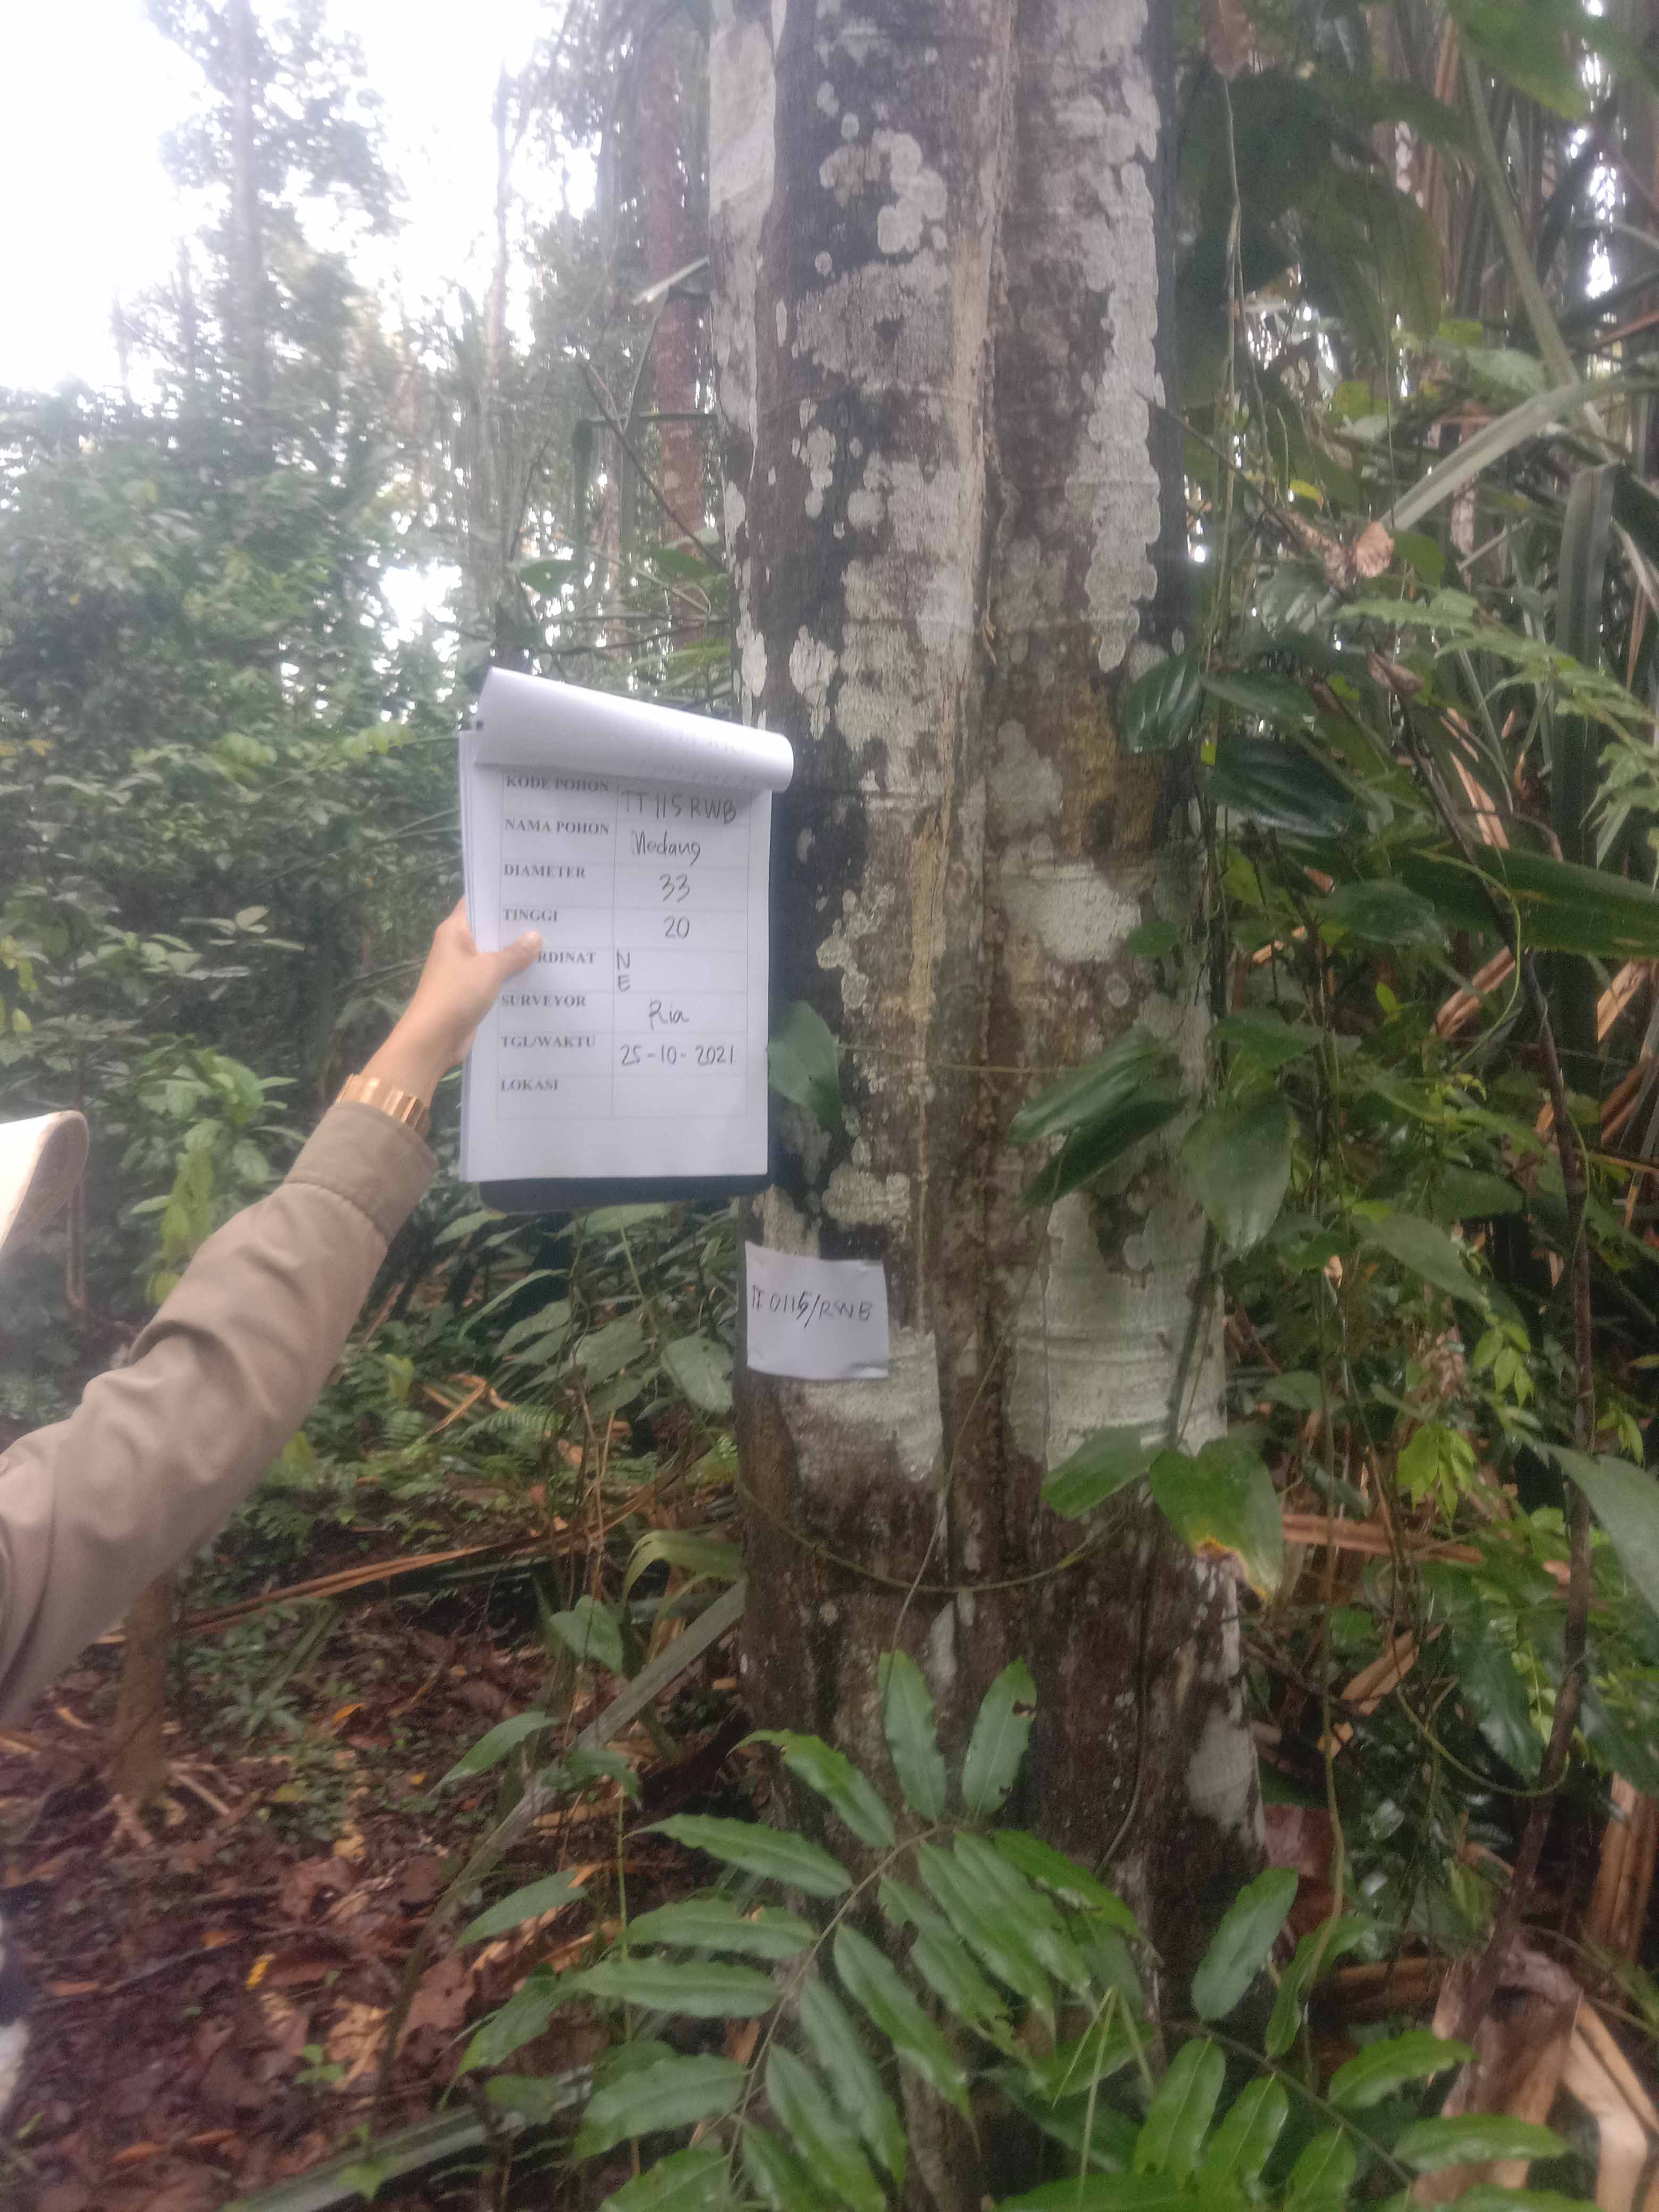 KODE POHON TT 115 RWB
NAMA POHON Medang
DIAMETER 33
TINGGI 20
RDINAT N
E
SURVEYOR Ria
TGL/WAKTU 25-10-2021
LOKASI
TT 0115/RWB